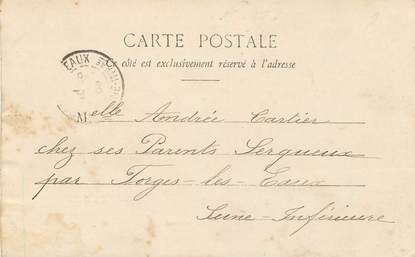 CARTE POSTALE
côté est exclusivement réservé à l'adresse
EAUX
Melle Andrée Cartier
chez ses Parents Serqueux
par Forges-les-Eaux
Seine-Inférieure